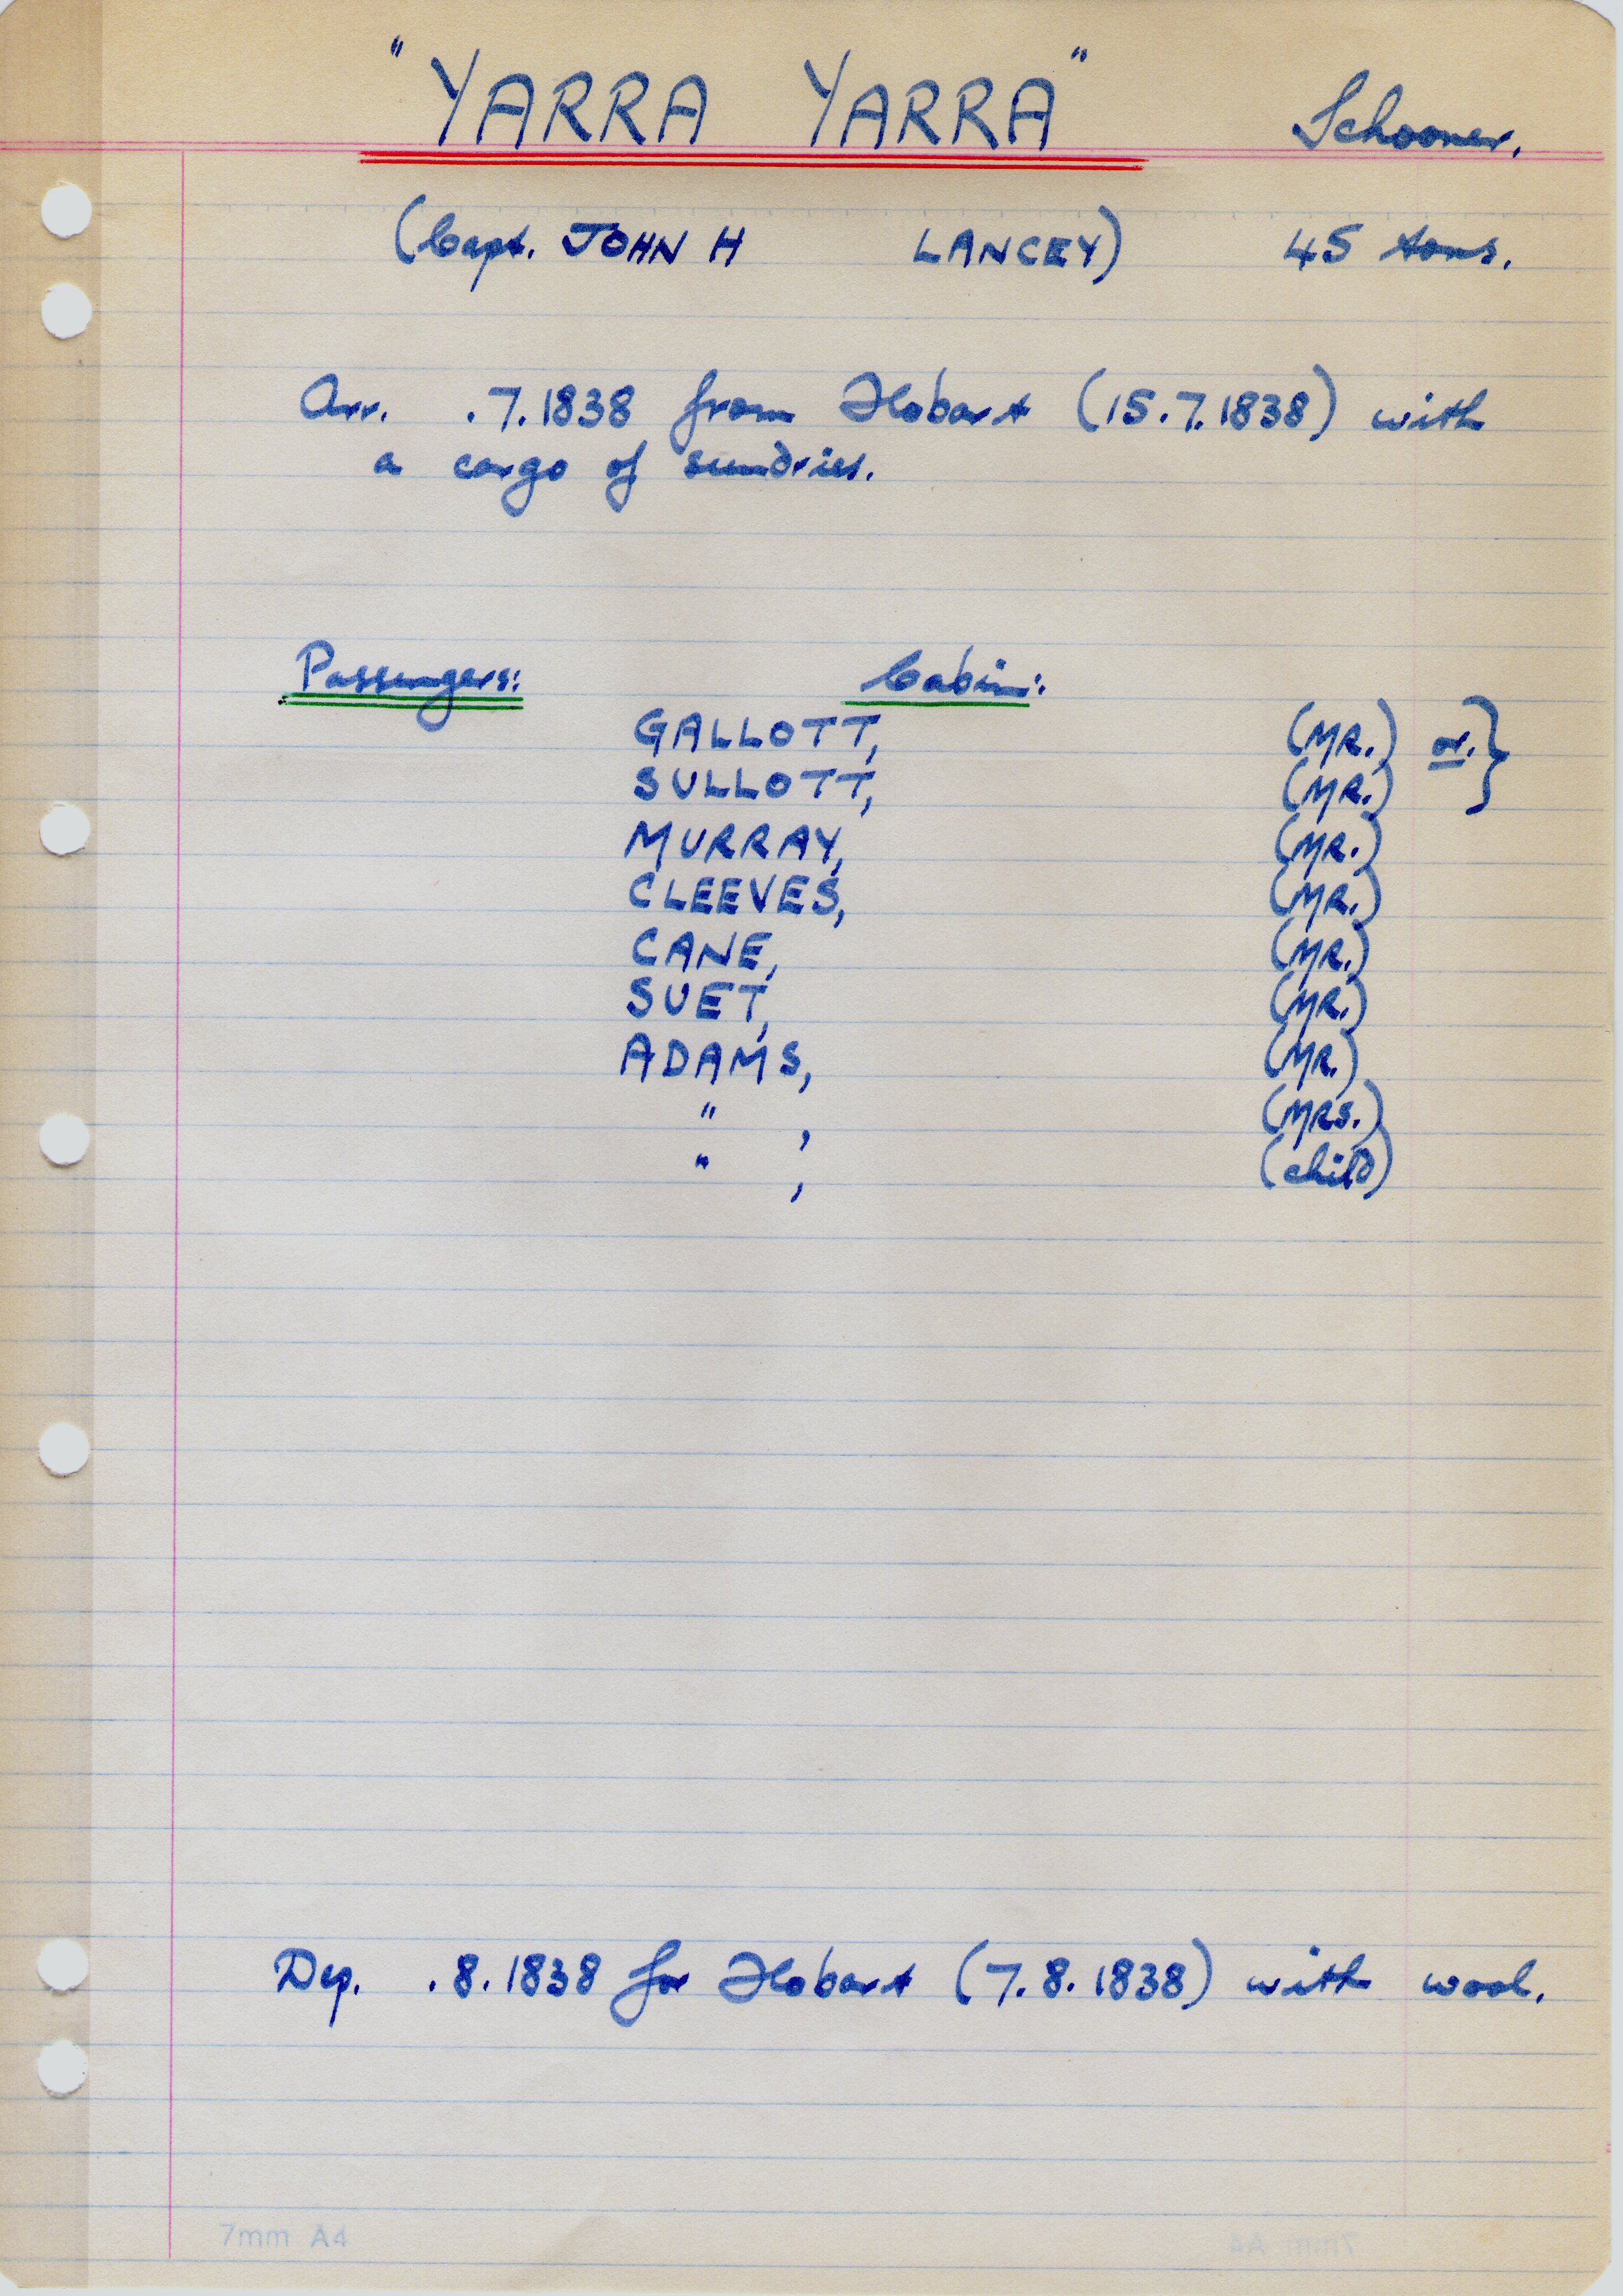 "YARRA YARRA" Schooner.
(Capt. JOHN H LANCEY) 45 tons.
Arr. .7.1838 from Hobart (15.7.1838) with
a cargo of sundries.
Passengers: Cabin:
GALLOTT, (MR.) or. }
SULLOTT, (MR.)
MURRAY, (MR.)
CLEEVES, (MR.)
CANE, (MR.)
SUET, (MR.)
ADAMS, (MR.)
" , (MRS.)
" , (child)
Dep. .8.1838 for Hobart (7.8.1838) with wool.
7mm A4